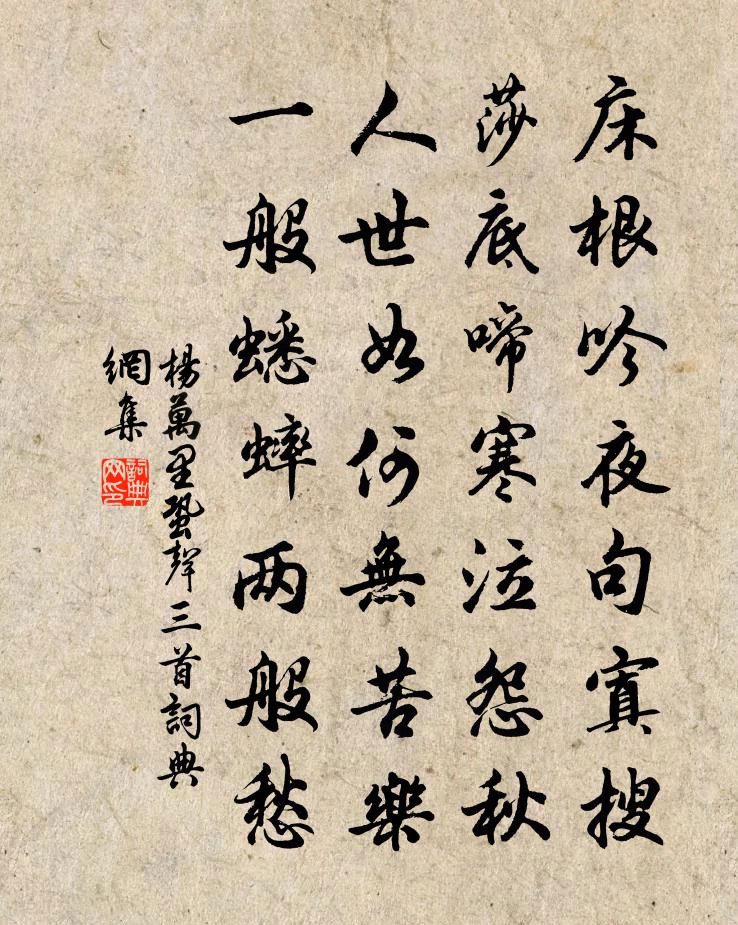 床根吟夜句冥搜
莎底啼寒泣怨秋
人世如何無苦樂
一般蟋蟀两般愁
楊萬里蛩聲三首詞典
網集
詞典網印